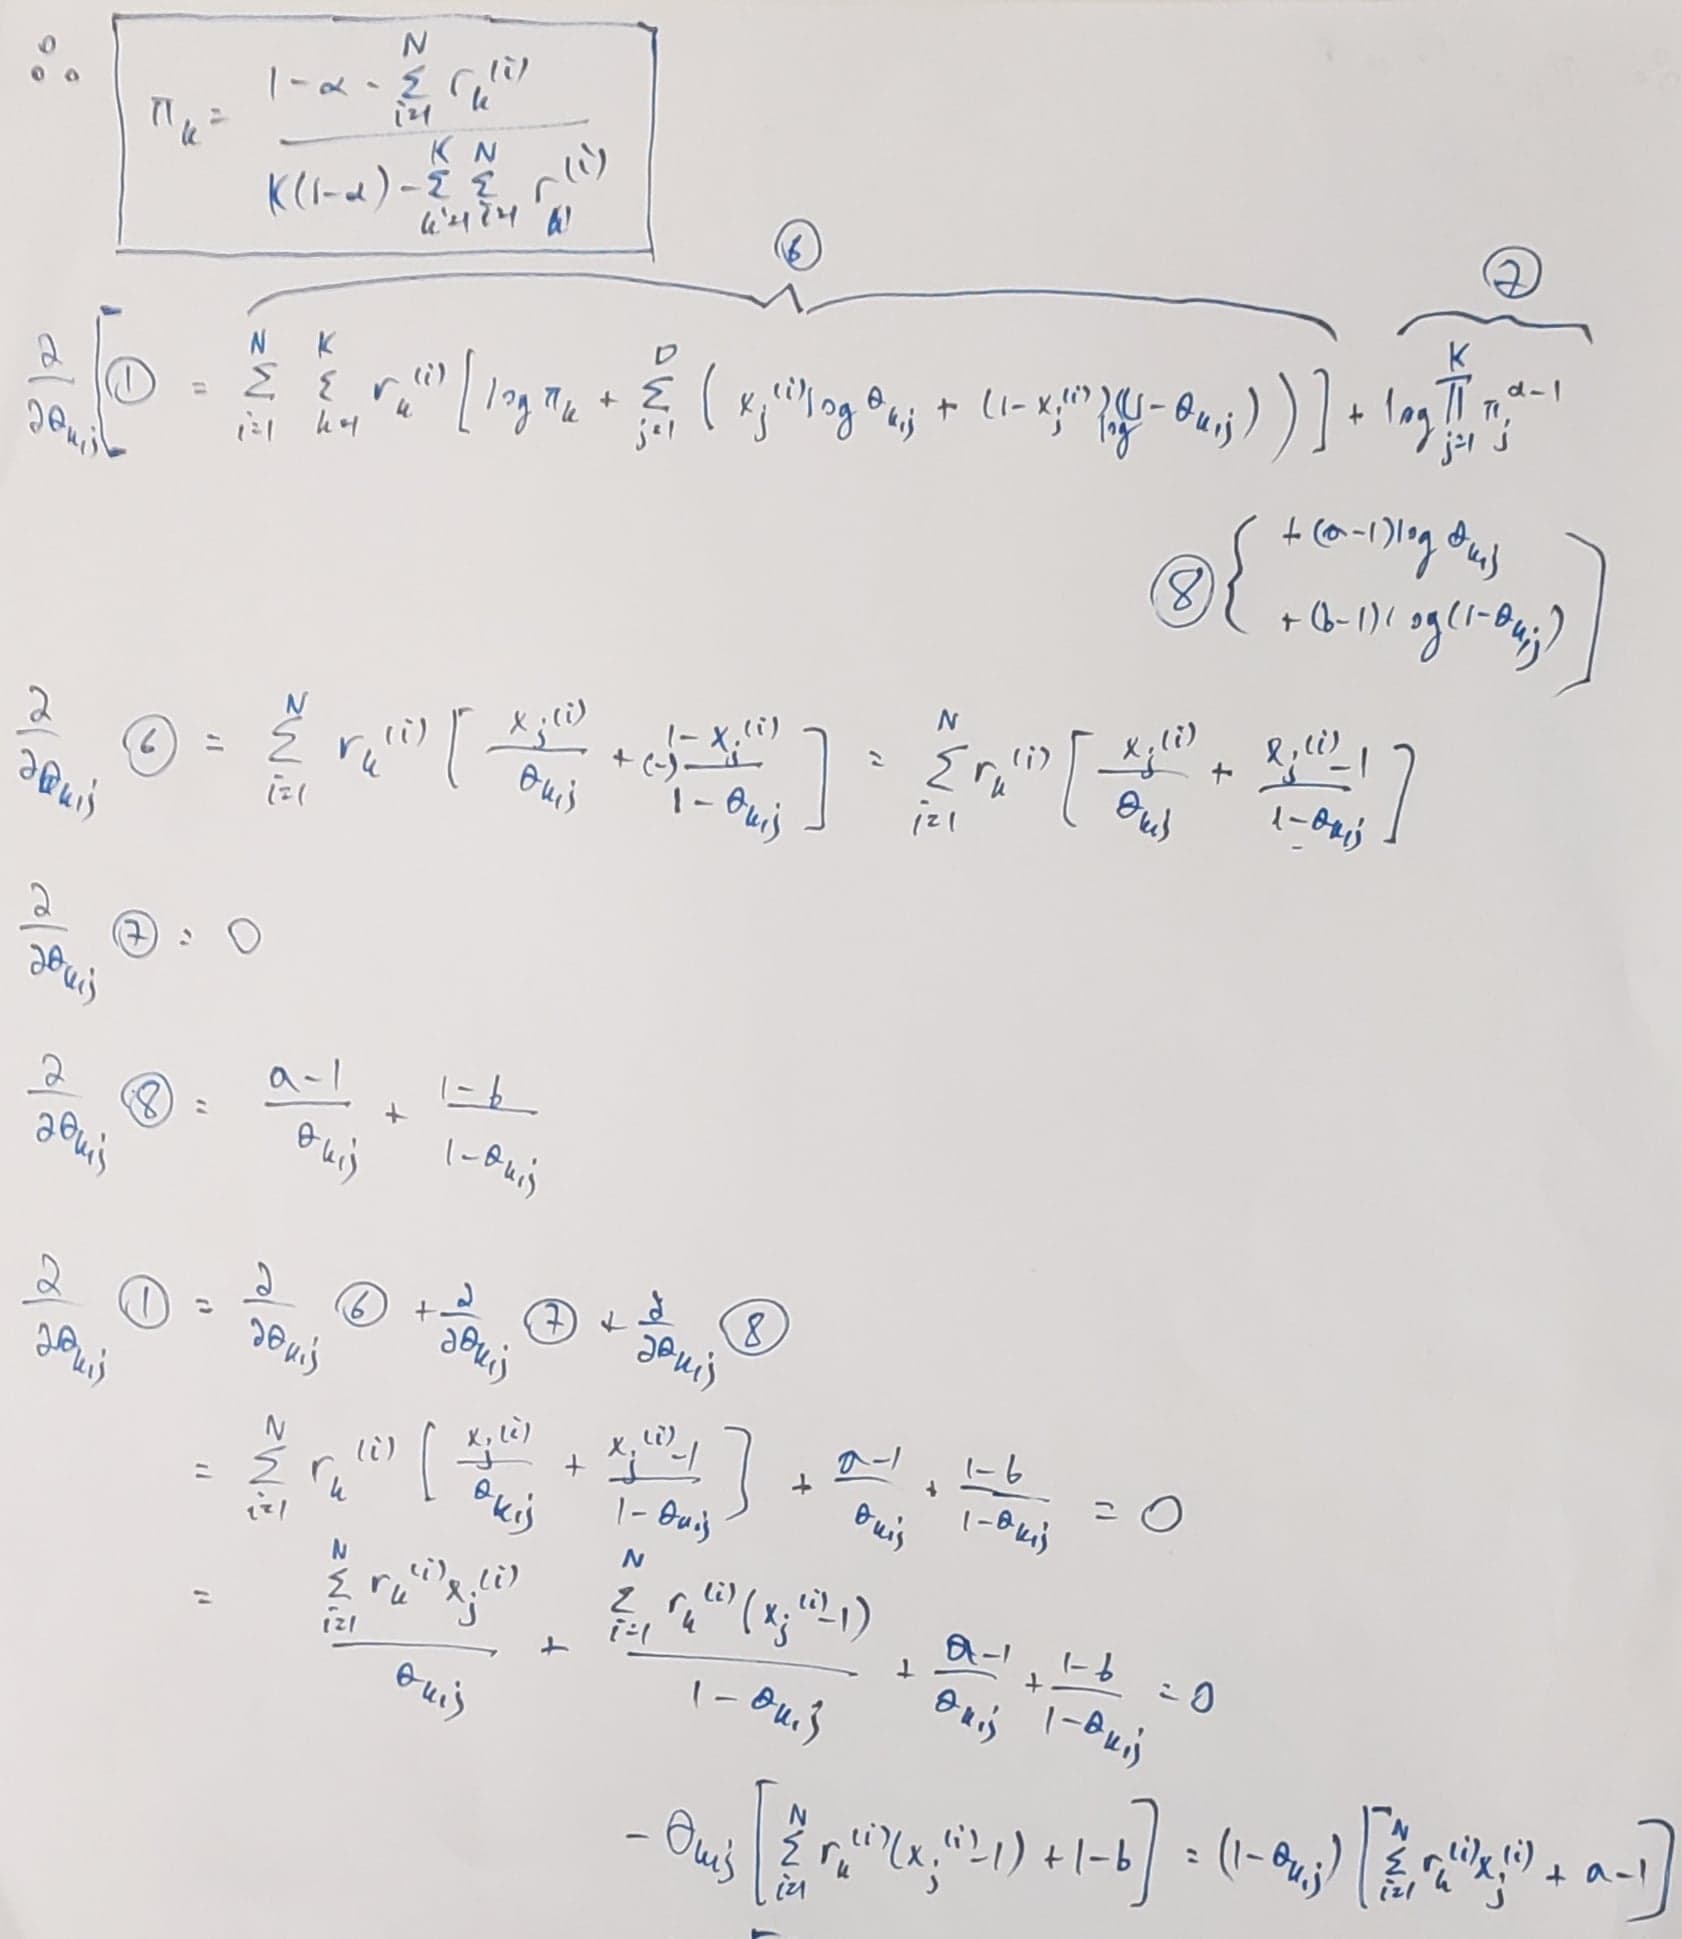 ∴ π_k = (1-α - Σ_{i=1}^{N} r_k^{(i)}) / (K(1-α) - Σ_{k'=1}^{K} Σ_{i=1}^{N} r_{k'}^{(i)})
⑥ ⑦
∂/∂θ_{k,j} [ ① = Σ_{i=1}^{N} Σ_{k=1}^{K} r_k^{(i)} [ log π_k + Σ_{j=1}^{D} ( x_j^{(i)} log θ_{k,j} + (1-x_j^{(i)}) log (1-θ_{k,j}) ) ] + log Π_{j=1}^{K} π_j^{α-1}
⑧ { + (a-1) log θ_{k,j}
+ (b-1) log (1-θ_{k,j}) ]
∂/∂θ_{k,j} ⑥ = Σ_{i=1}^{N} r_k^{(i)} [ x_j^{(i)} / θ_{k,j} + (-) (1-x_j^{(i)}) / (1-θ_{k,j}) ] = Σ_{i=1}^{N} r_k^{(i)} [ x_j^{(i)} / θ_{k,j} + (x_j^{(i)}-1) / (1-θ_{k,j}) ]
∂/∂θ_{k,j} ⑦ = 0
∂/∂θ_{k,j} ⑧ = (a-1) / θ_{k,j} + (1-b) / (1-θ_{k,j})
∂/∂θ_{k,j} ① = ∂/∂θ_{k,j} ⑥ + ∂/∂θ_{k,j} ⑦ + ∂/∂θ_{k,j} ⑧
= Σ_{i=1}^{N} r_k^{(i)} [ x_j^{(i)} / θ_{k,j} + (x_j^{(i)}-1) / (1-θ_{k,j}) ] + (a-1) / θ_{k,j} + (1-b) / (1-θ_{k,j}) = 0
= Σ_{i=1}^{N} r_k^{(i)} x_j^{(i)} / θ_{k,j} + Σ_{i=1}^{N} r_k^{(i)} (x_j^{(i)}-1) / (1-θ_{k,j}) + (a-1) / θ_{k,j} + (1-b) / (1-θ_{k,j}) = 0
- θ_{k,j} [ Σ_{i=1}^{N} r_k^{(i)} (x_j^{(i)}-1) + 1-b ] = (1-θ_{k,j}) [ Σ_{i=1}^{N} r_k^{(i)} x_j^{(i)} + a-1 ]